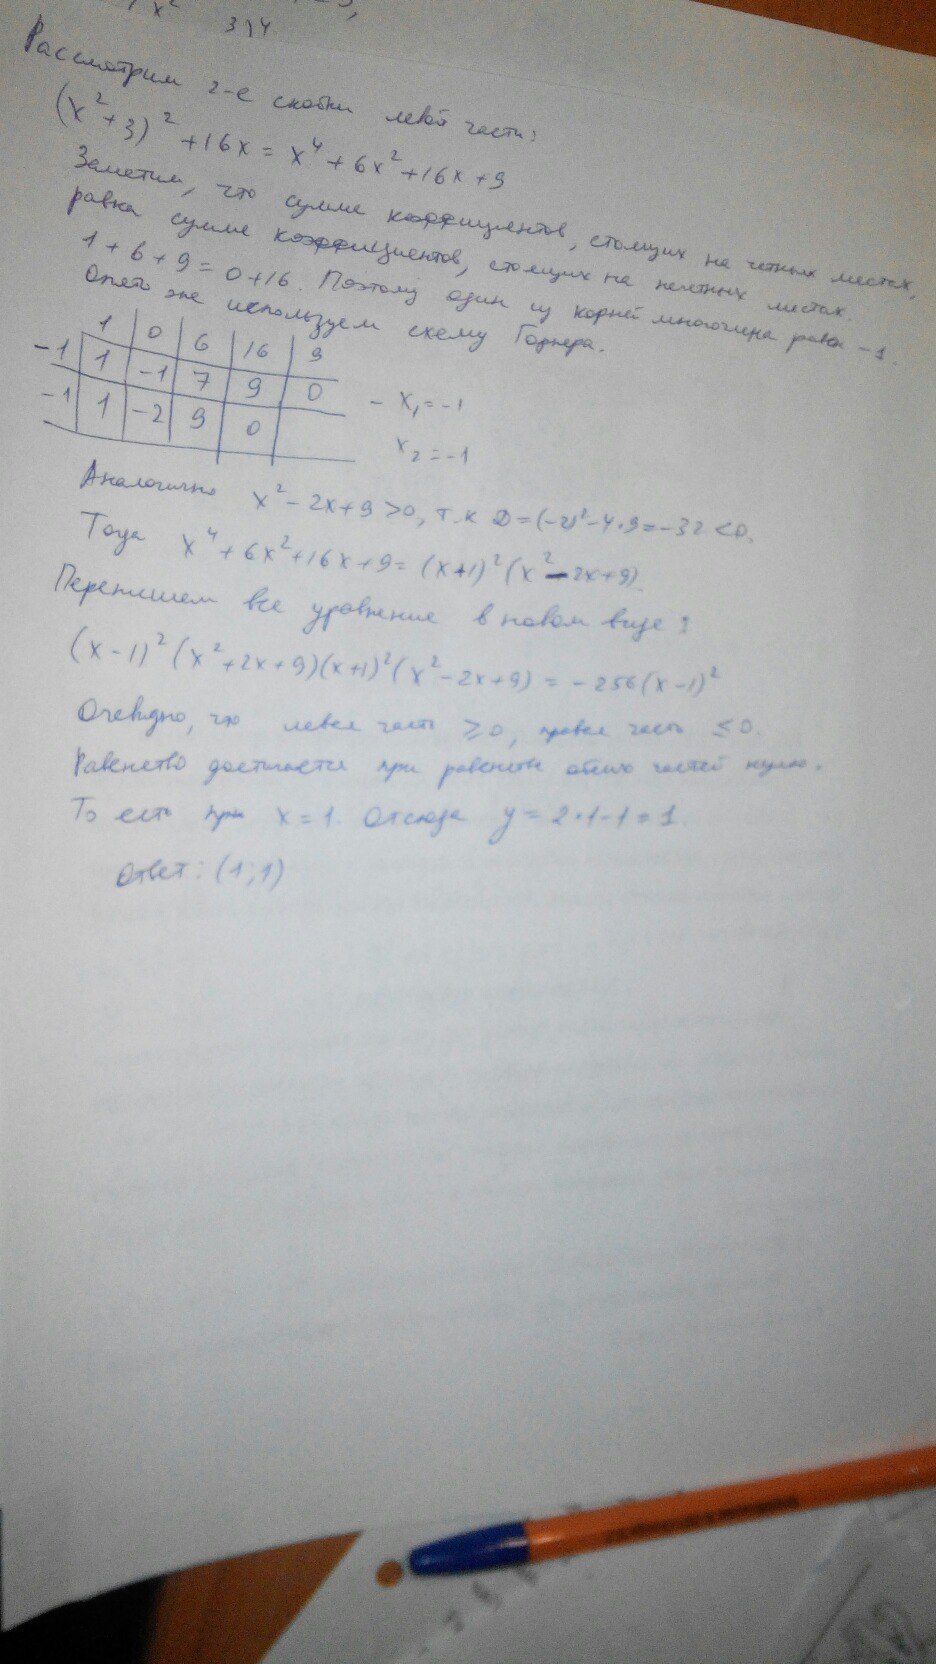 x²
3 14
Рассмотрим 2-е скобки левой части:
(x²+3)²+16x=x⁴+6x²+16x+9
Заметим, что сумме коэффициентов, стоящих на четных местах,
равна сумме коэффициентов, стоящих на нечетных местах.
1+6+9=0+16. Поэтому один из корней многочлена равен -1.
Опять же используем схему Горнера.
1 0 6 16 9
-1 1 -1 7 9 0 - x₁=-1
-1 1 -2 9 0 x₂=-1
Аналогично x²-2x+9>0, т.к D=(-2)²-4•9=-32<0.
Тогда x⁴+6x²+16x+9=(x+1)²(x²-2x+9).
Перепишем все уравнение в новом виде:
(x-1)²(x²+2x+9)(x+1)²(x²-2x+9)=-256(x-1)²
Очевидно, что левая часть ≥0, правая часть ≤0.
Равенство достигается при равенстве обеих частей нулю.
То есть при x=1. Отсюда y=2•1-1=1.
Ответ: (1;1)